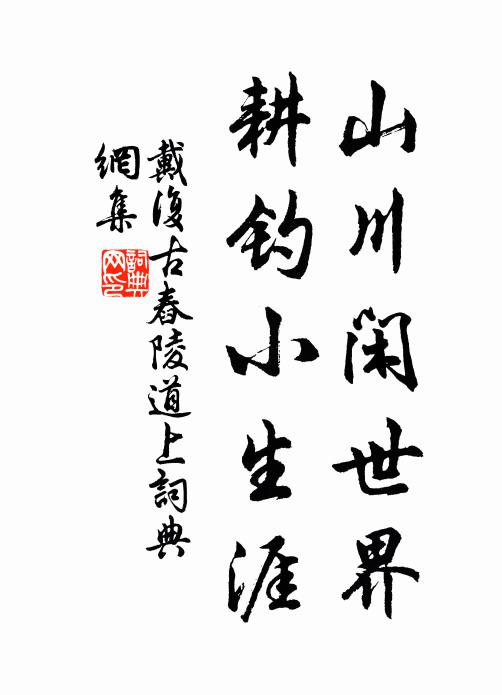 山川閑世界
耕钓小生涯
戴復古舂陵道上詞典
網集
詞典網印